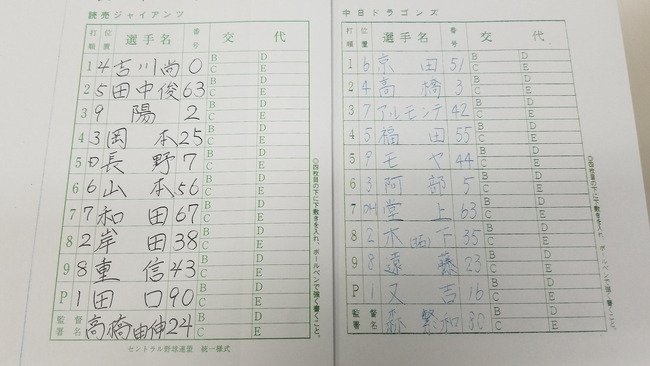 読売ジャイアンツ
打順 位置 選手名 番号 交代
1 4 吉川尚 0 B D C E
2 5 田中俊 63 B D C E
3 9 陽 2 B D C E
4 3 岡本 25 B D C E
5 D 長野 7 B D C E
6 6 山本 56 B D C E
7 7 和田 67 B D C E
8 2 岸田 38 B D C E
9 8 重信 43 B D C E
P 1 田口 90 B D C E
監督署名 高橋由伸 24 B D C E
セントラル野球連盟 統一様式
◎四枚目の下に下敷きを入れ、ボールペンで強く書くこと。
中日ドラゴンズ
打順 位置 選手名 番号 交代
1 6 京田 51 B D C E
2 4 高橋 3 B D C E
3 7 アルモンテ 42 B D C E
4 5 福田 55 B D C E
5 9 モヤ 44 B D C E
6 3 阿部 5 B D C E
7 DH 堂上 63 B D C E
8 2 木(拓)下 35 B D C E
9 8 遠藤 23 B D C E
P 1 又吉 16 B D C E
監督署名 森繁和 80 B D C E
◎四枚目の下に下敷きを入れ、ボールペンで強く書くこと。